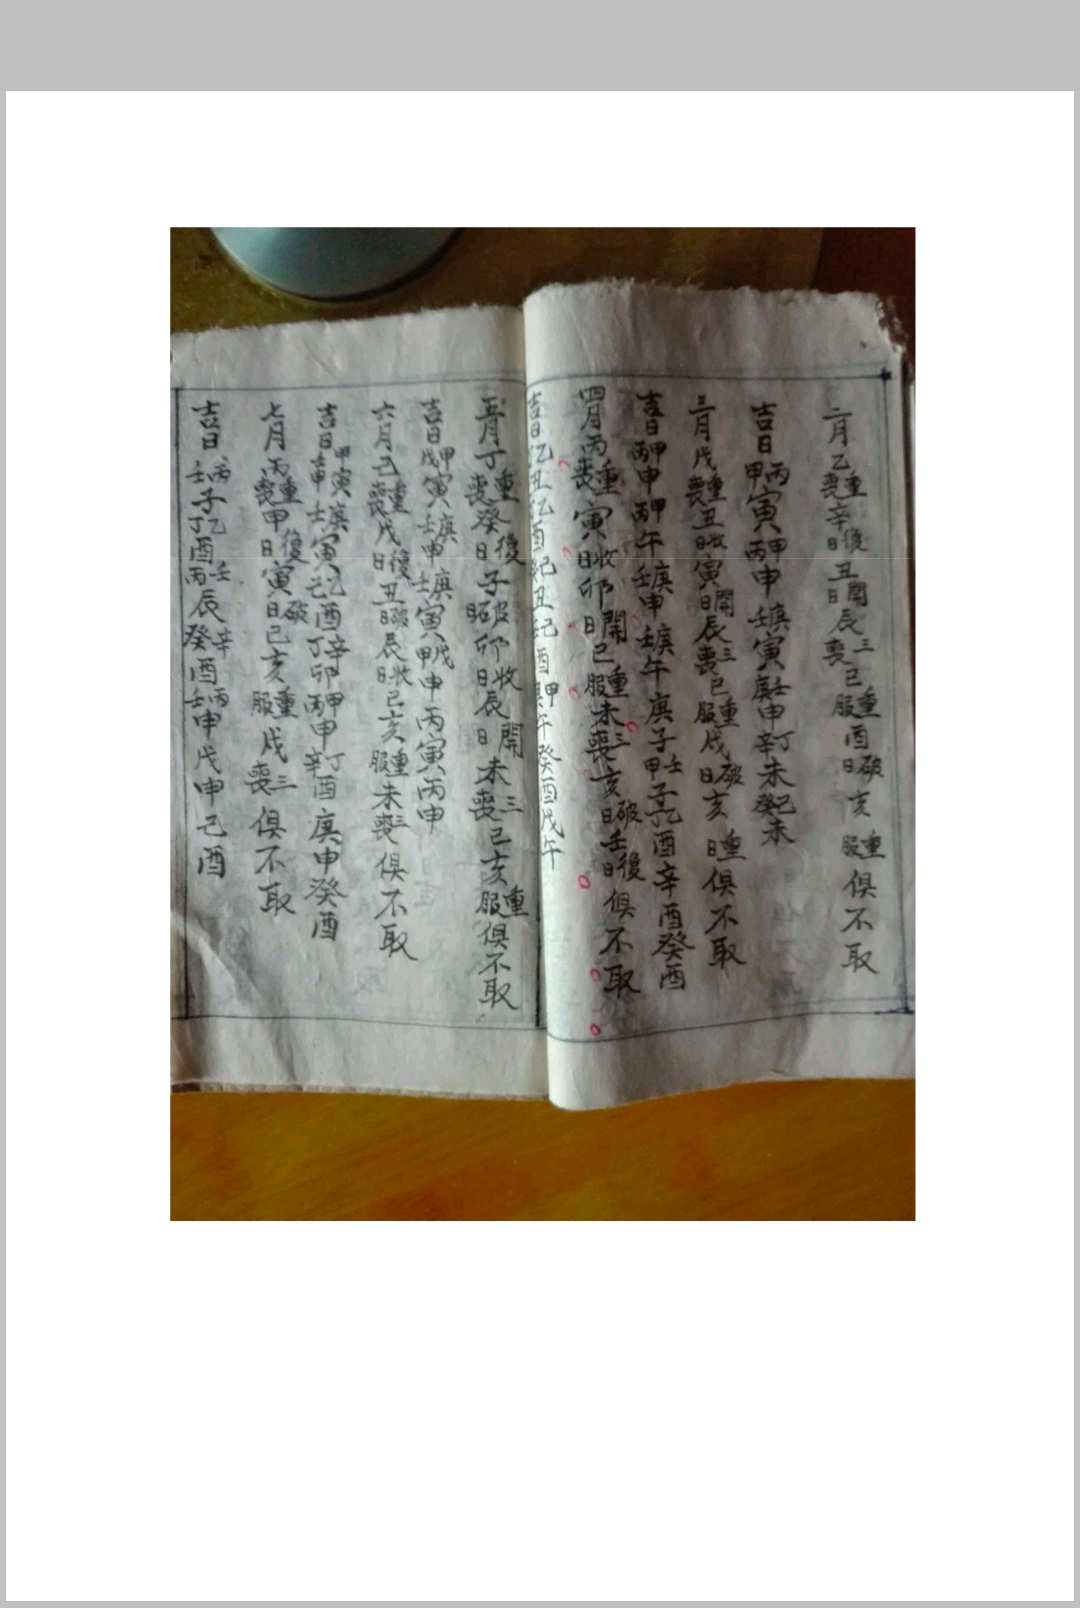 二月乙重喪辛後日丑開日辰三喪巳重服酉破日亥重服俱不取
吉日丙甲寅甲丙申庚壬寅壬庚申丁辛未己癸未
三月戊重喪丑收日寅開日辰三喪巳重服戌破日亥重日俱不取
吉日甲丙申甲丙午庚壬申庚壬午庚子壬甲子乙酉辛酉癸酉
四月丙重喪寅收日卯開日巳重服未三喪亥破日壬後日俱不取
吉日乙丑乙酉丑酉甲午癸酉戊午
五月丁重喪癸後日子破日卯收日辰開日未三喪巳亥重服俱不取
吉日甲戊寅庚壬申庚壬寅戊甲申丙寅丙申
六月己重喪戊後日丑破日辰收日巳亥重服未三喪俱不取
吉日甲寅申庚壬寅乙己酉辛丁卯甲丙申丁辛酉庚申癸酉
七月丙重喪甲後日寅破日巳亥重服戌三喪俱不取
吉日丙壬子乙丁酉壬丙辰辛癸酉丙壬申戊申己酉